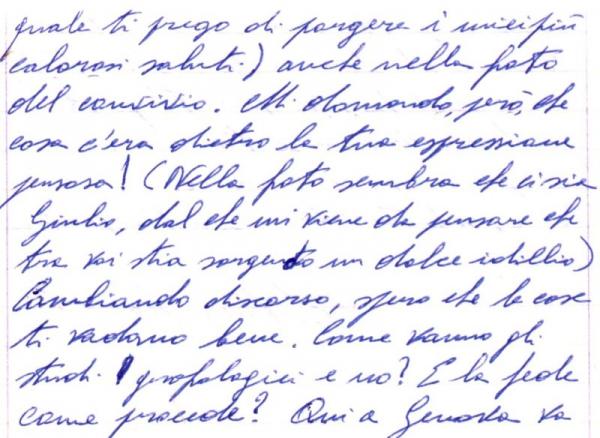 quale ti prego di porgere i miei più
calorosi saluti.) anche nella foto
del convivio. Mi domando, però, che
cosa c'era dietro la tua espressione
pensosa! (Nella foto sembra che ci sia
Giulio, dal che mi viene da pensare che
tra voi stia sorgendo un dolce idillio)
Cambiando discorso, spero che le cose
ti vadano bene. Come vanno gli
studi grafologici e no? E la fede
come procede? Qui a Genova va